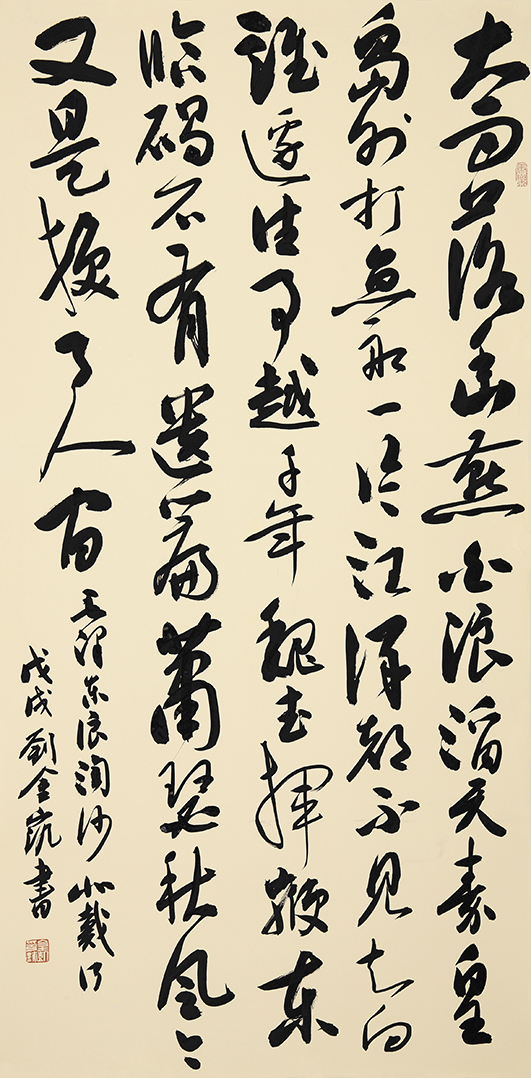 大雨落幽燕白浪滔天秦皇
岛外打鱼船一片汪洋都不见知向
谁边往事越千年魏武揮鞭东
临碣石有遗篇萧瑟秋风今
又是换了人间
毛泽东浪淘沙北戴河
戊戌刘金書